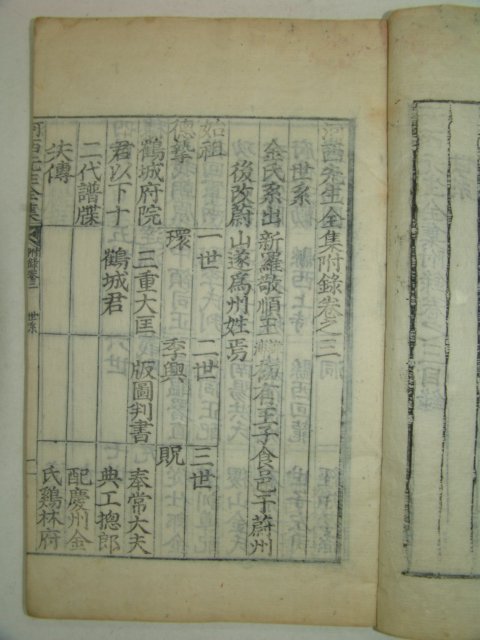 河西先生全集附錄卷之三
世系
金氏系出新羅敬順王有王子食邑于蔚州
後改蔚山遂爲州姓焉
始祖 一世 二世 三世
德摯 環 季興 貺
鶴城府院 三重大匡 版圖判書 奉常大夫
君以下十五 鶴城君 典工摠郎
二代譜牒 配慶州金
失傳 氏鷄林府
河西先生全集 附錄卷三 世系 一